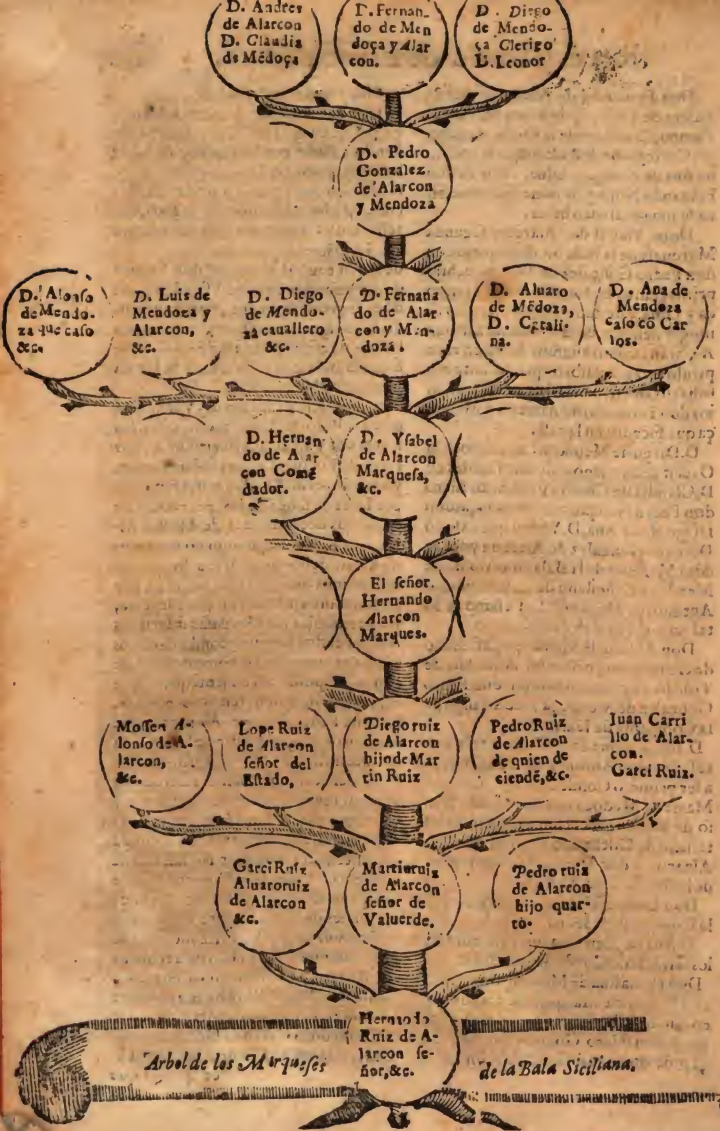 D. Andres
de Alarcon
D. Claudia
de Mẽdoça
D. Fernan-
do de Men
doça y Alar
con.
D. Diego
de Mendo-
ça Clerigo
D. Leonor
D. Pedro
Gonzalez
de Alarcon
y Mendoza
D. Alonso
de Mendo-
za que caso
&c.
D. Luis de
Mendoza y
Alarcon,
&c.
D. Diego
de Mendo-
za cauallero
&c.
D. Fernan
do de Alar
con y Men-
doza.
D. Aluaro
de Mẽdoza,
D. Catali-
na.
D. Ana de
Mendoza
caso cõ Car
los.
D. Hernan
do de Alar
con Comẽ
dador.
D. Ysabel
de Alarcon
Marquesa,
&c.
El señor
Hernando
Alarcon
Marques.
Mossen A-
lonso de A-
larcon,
&c.
Lope Ruiz
de Alarcon
señor del
Estado,
Diego ruiz
de Alarcon
hijo de Mar
tin Ruiz
Pedro Ruiz
de Alarcon
de quien de
ciendẽ, &c.
Juan Carri
llo de Alar-
con.
Garci Ruiz.
Garci Ruiz
Aluaro ruiz
de Alarcon
&c.
Martin ruiz
de Alarcon
señor de
Valuerde.
Pedro ruiz
de Alarcon
hijo quar-
to.
Hernando
Ruiz de A-
larcon se-
ñor, &c.
Arbol de los Marqueses de la Bala Siciliana.